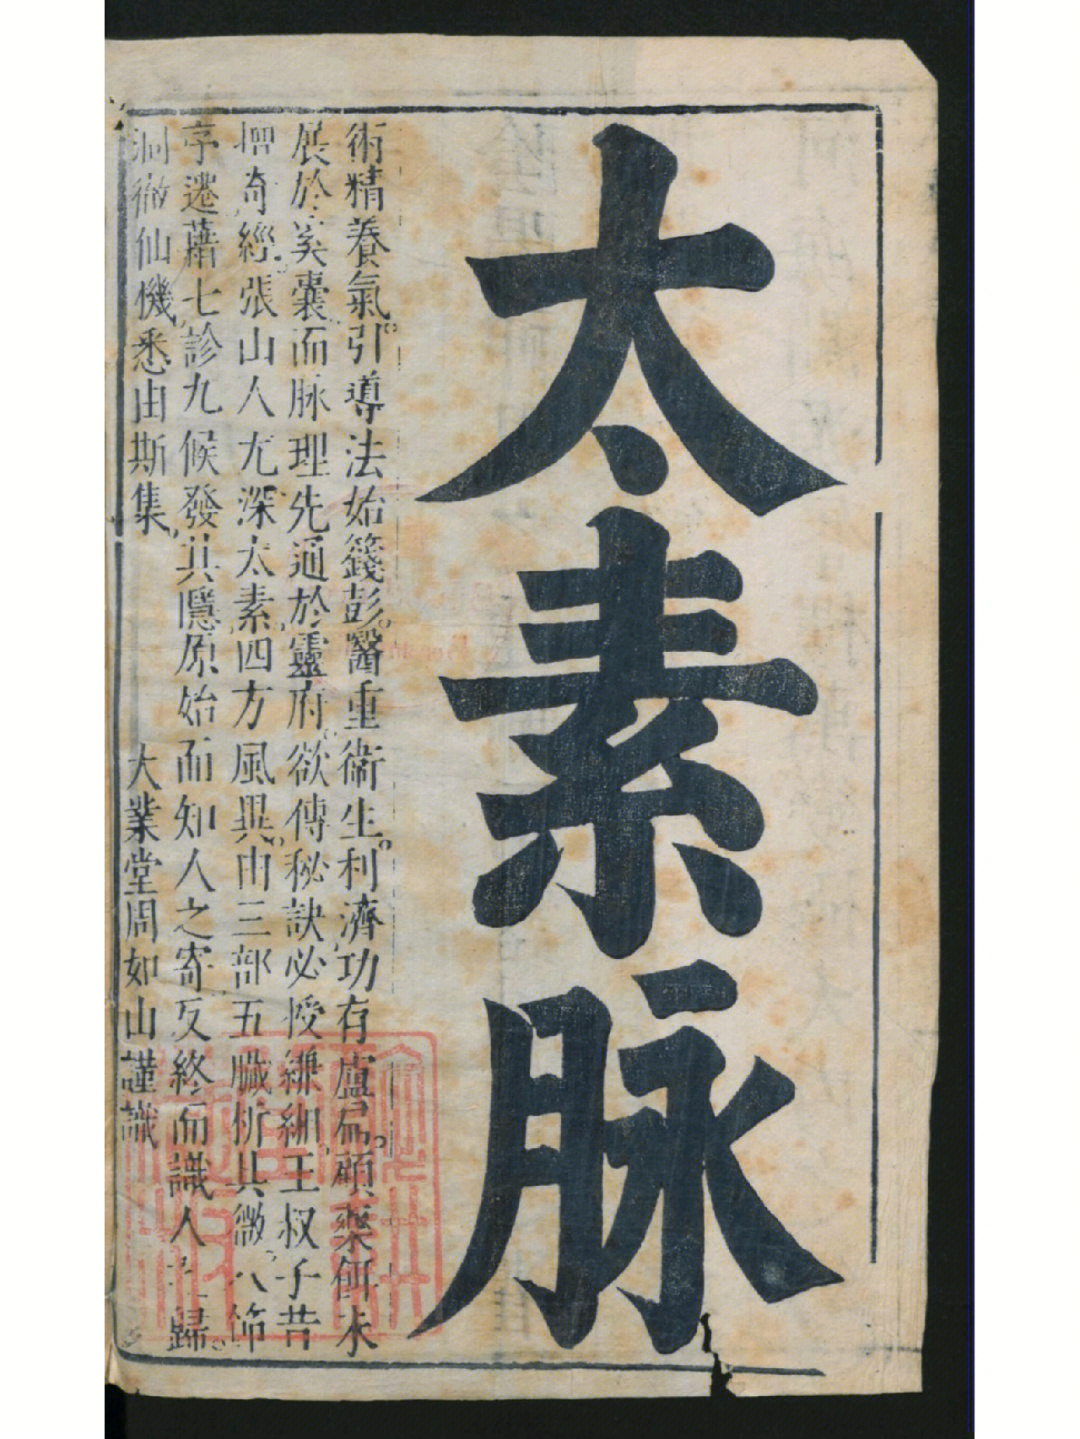 太素脉
術精養氣。引導法始籛彭。醫重衛生。利濟功存盧扁。顧藥餌未
展於奚囊而脉理先通於靈府。欲傳秘訣必授纁緗。王叔子昔
增奇經。張山人尤深太素。四方風異。由三部五臟析其微。八節
序遷藉七診九候發其隱。原始而知人之寄。反終而識人之歸。
洞徹仙機。悉由斯集。
大業堂周如山謹識